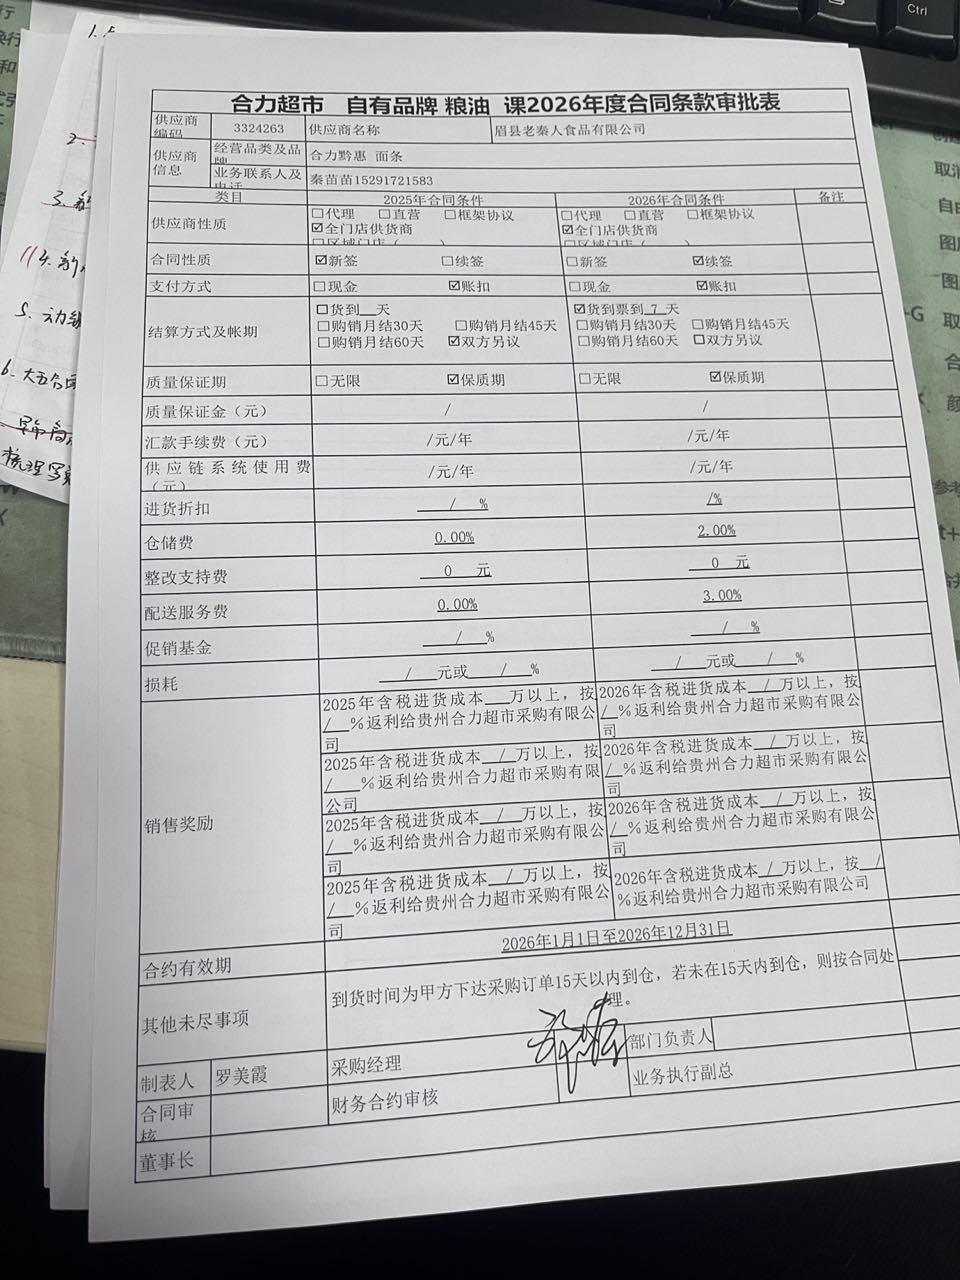 Ctrl
合力超市 自有品牌 粮油 课2026年度合同条款审批表
供应商编码 3324263 供应商名称 眉县老秦人食品有限公司
供应商信息 经营品类及品牌 合力黔惠 面条
业务联系人及电话 秦苗苗15291721583
类目 2025年合同条件 2026年合同条件 备注
供应商性质 □代理 □直营 □框架协议 □代理 □直营 □框架协议
☑全门店供货商 ☑全门店供货商
□区域门店( ) □区域门店( )
合同性质 ☑新签 □续签 □新签 ☑续签
支付方式 □现金 ☑账扣 □现金 ☑账扣
结算方式及帐期 □货到__天 ☑货到票到_7_天
□购销月结30天 □购销月结45天 □购销月结30天 □购销月结45天
□购销月结60天 ☑双方另议 □购销月结60天 □双方另议
质量保证期 □无限 ☑保质期 □无限 ☑保质期
质量保证金（元） / /
汇款手续费（元） /元/年 /元/年
供应链系统使用费（元） /元/年 /元/年
进货折扣 / % /%
仓储费 0.00% 2.00%
整改支持费 0 元 0 元
配送服务费 0.00% 3.00%
促销基金 / % / %
损耗 / 元或 / % / 元或 / %
销售奖励
2025年含税进货成本__万以上，按/__%返利给贵州合力超市采购有限公司 2026年含税进货成本_/_万以上，按/_%返利给贵州合力超市采购有限公司
2025年含税进货成本_/_万以上，按/__%返利给贵州合力超市采购有限公司 2026年含税进货成本_/_万以上，按/_%返利给贵州合力超市采购有限公司
2025年含税进货成本_/_万以上，按/_%返利给贵州合力超市采购有限公司 2026年含税进货成本_/_万以上，按/_%返利给贵州合力超市采购有限公司
2025年含税进货成本_/_万以上，按/__%返利给贵州合力超市采购有限公司 2026年含税进货成本_/_万以上，按_/%返利给贵州合力超市采购有限公司
合约有效期 2026年1月1日至2026年12月31日
其他未尽事项 到货时间为甲方下达采购订单15天以内到仓，若未在15天内到仓，则按合同处理。
制表人 罗美霞 采购经理 部门负责人
合同审核 财务合约审核 业务执行副总
董事长